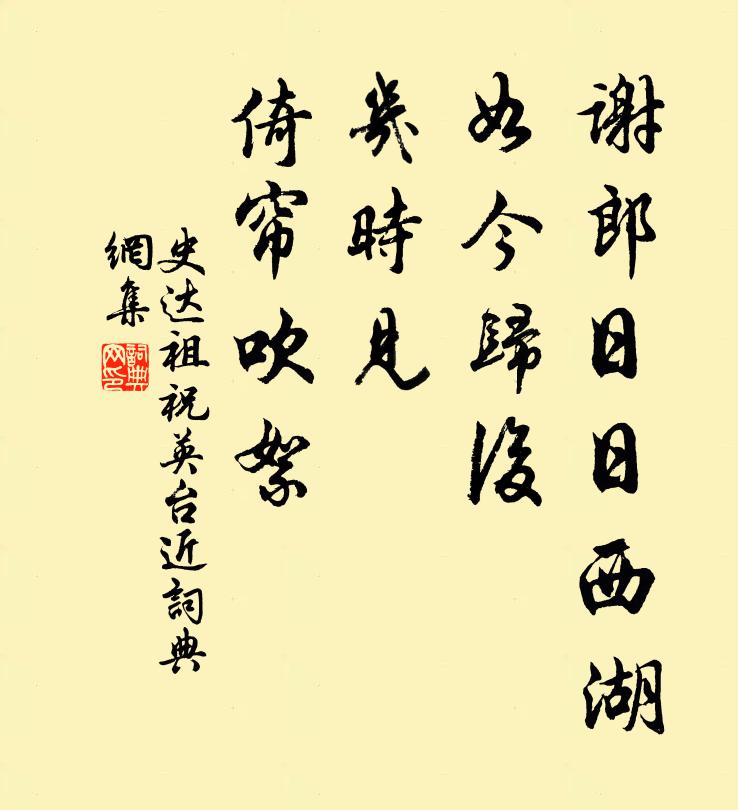 謝郎日日西湖
如今歸後
幾時見
倚帘吹絮
史达祖祝英台近詞典
網集
詞典
网印